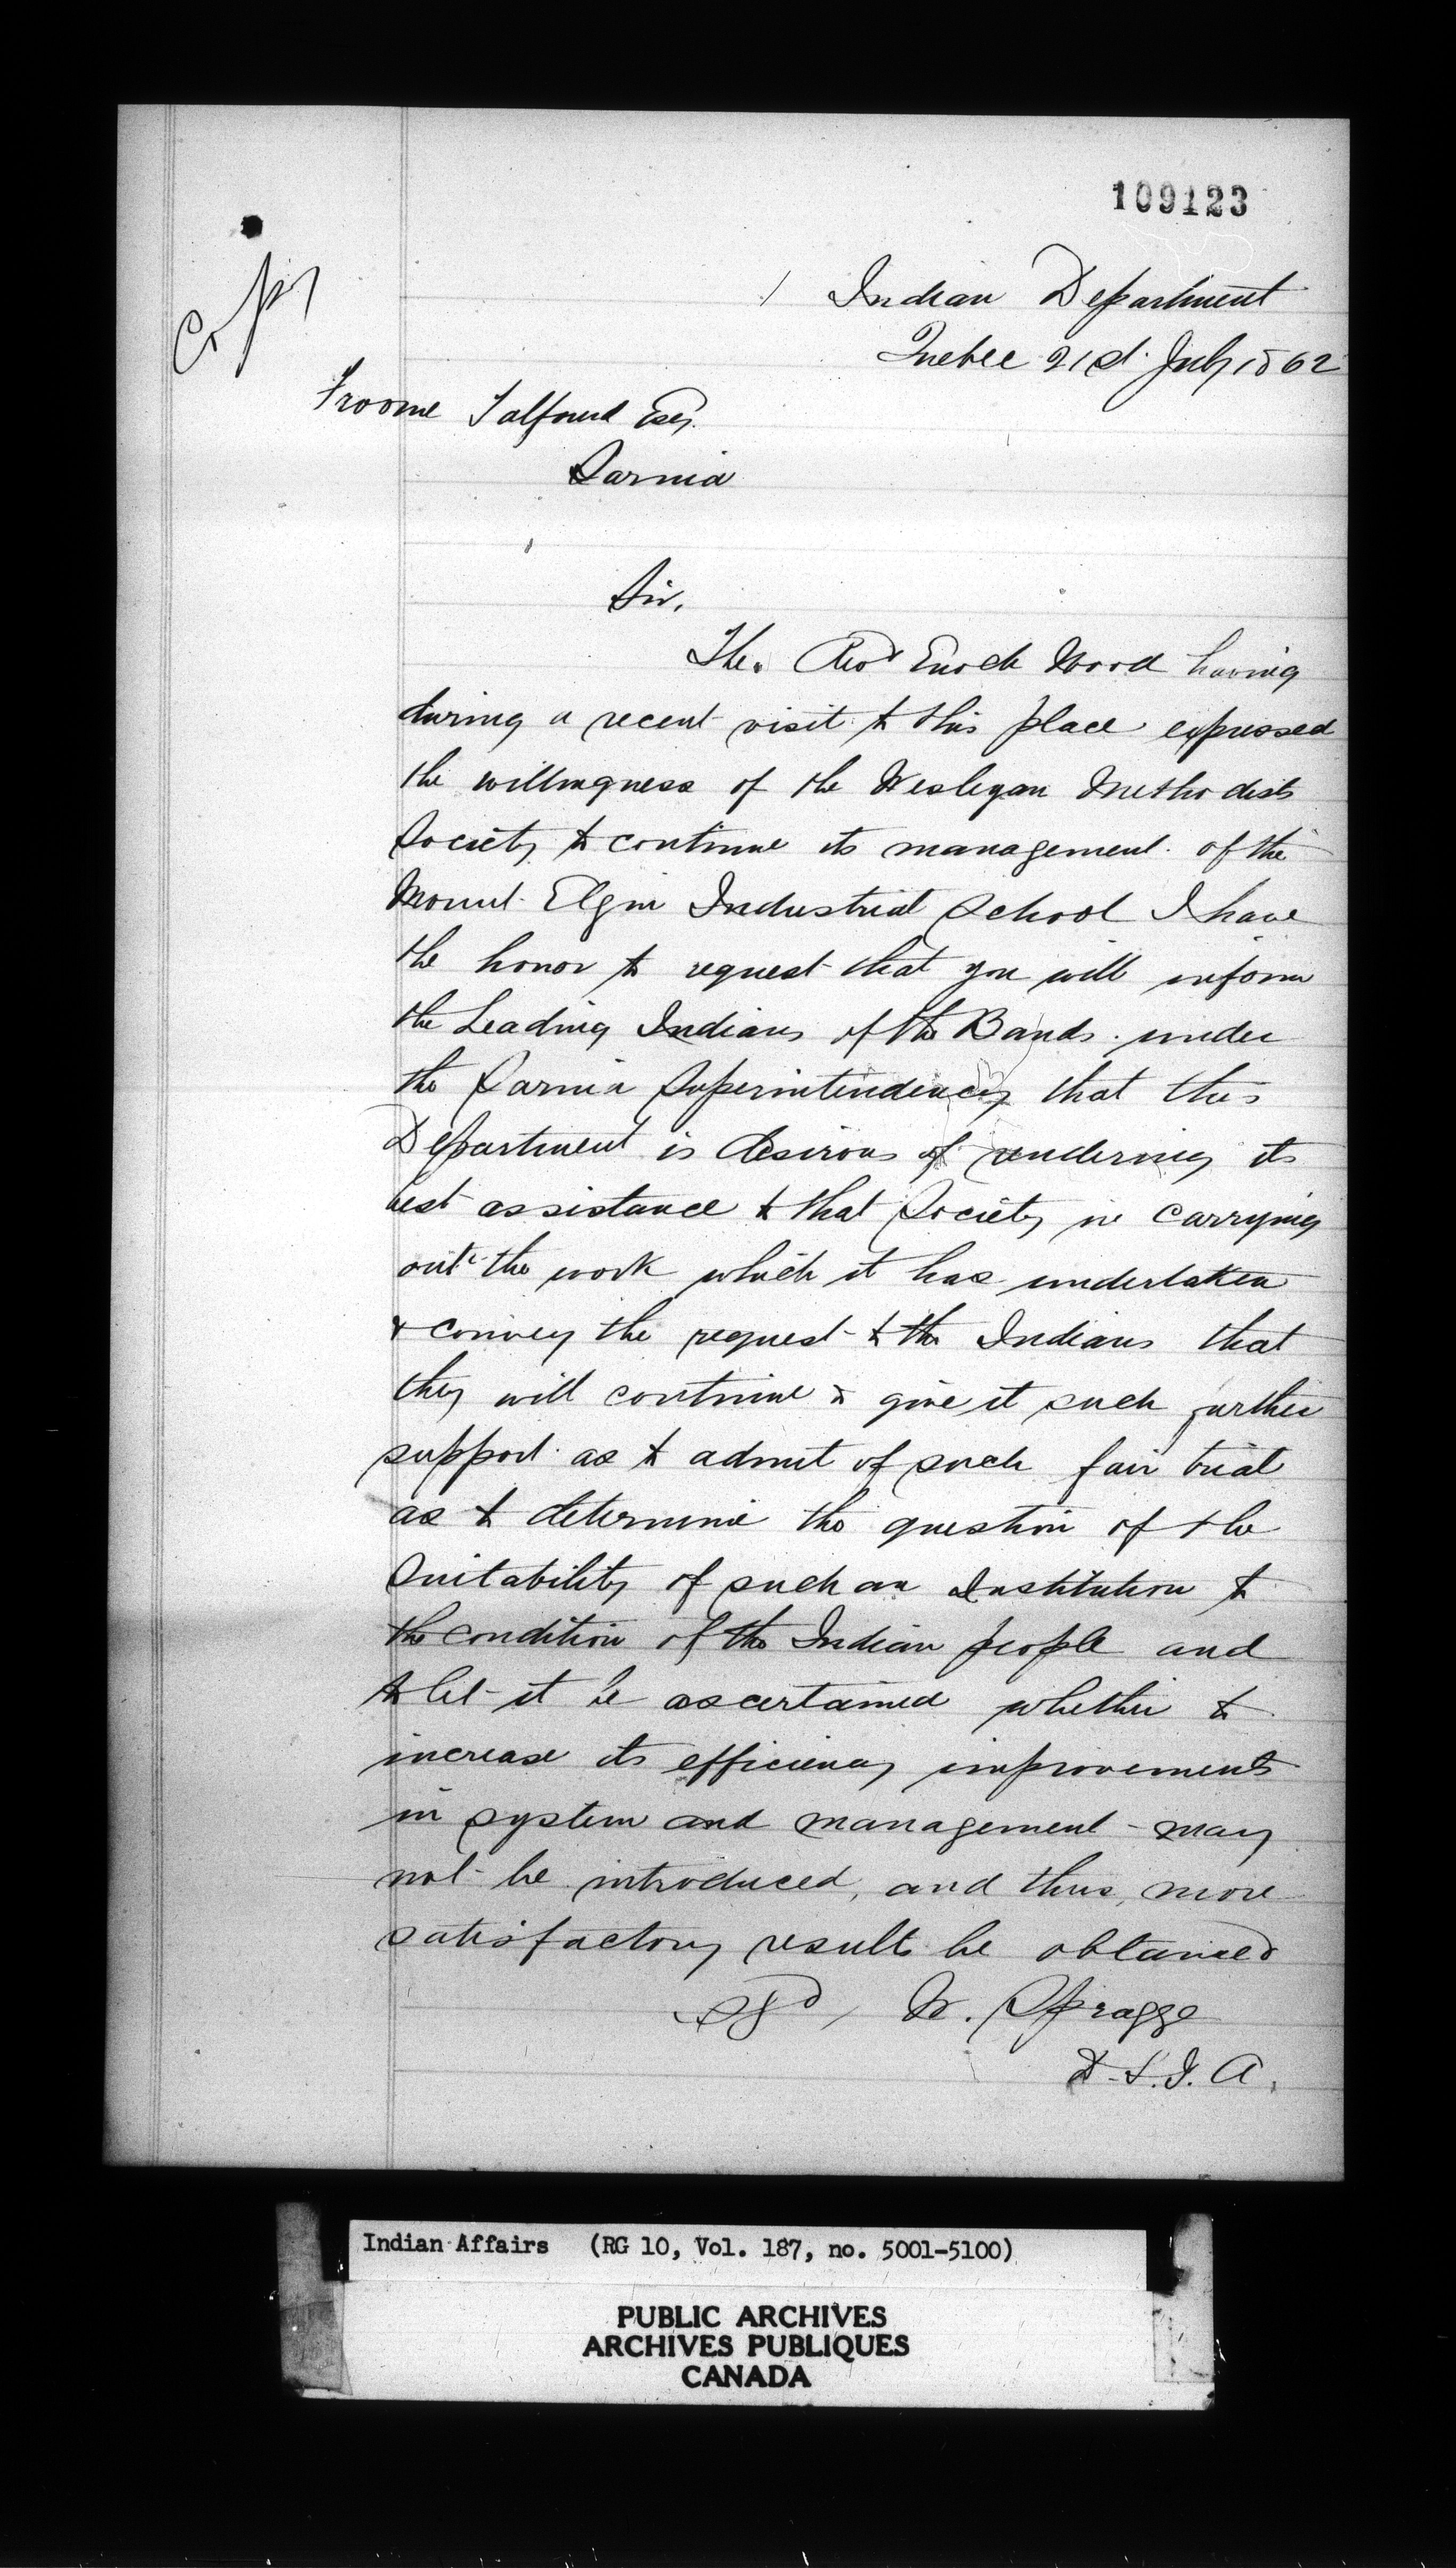 109123
Copy
Indian Department
Quebec 21st July 1862
Froome Talfourd Esq.
Sarnia
Sir,
The Revd Enoch Wood having
during a recent visit to this place expressed
the willingness of the Wesleyan Methodists
Society to continue its management of the
Mount Elgin Industrial School I have
the honor to request that you will inform
the Leading Indians of the Bands under
the Sarnia Superintendency that this
Department is desirous of rendering its
best assistance to that Society in carrying
out the work which it has undertaken
& convey the request to the Indians that
they will continue to give it such further
support as to admit of such fair trial
as to determine the question of the
Suitability of such an Institution to
the condition of the Indian people and
to let it be ascertained whether to
increase its efficiency improvements
in system and management may
not be introduced, and thus, more
satisfactory results be obtained
Sgd / W. Spragge
D.S.I.A.
Indian Affairs (RG 10, Vol. 187, no. 5001-5100)
PUBLIC ARCHIVES
ARCHIVES PUBLIQUES
CANADA